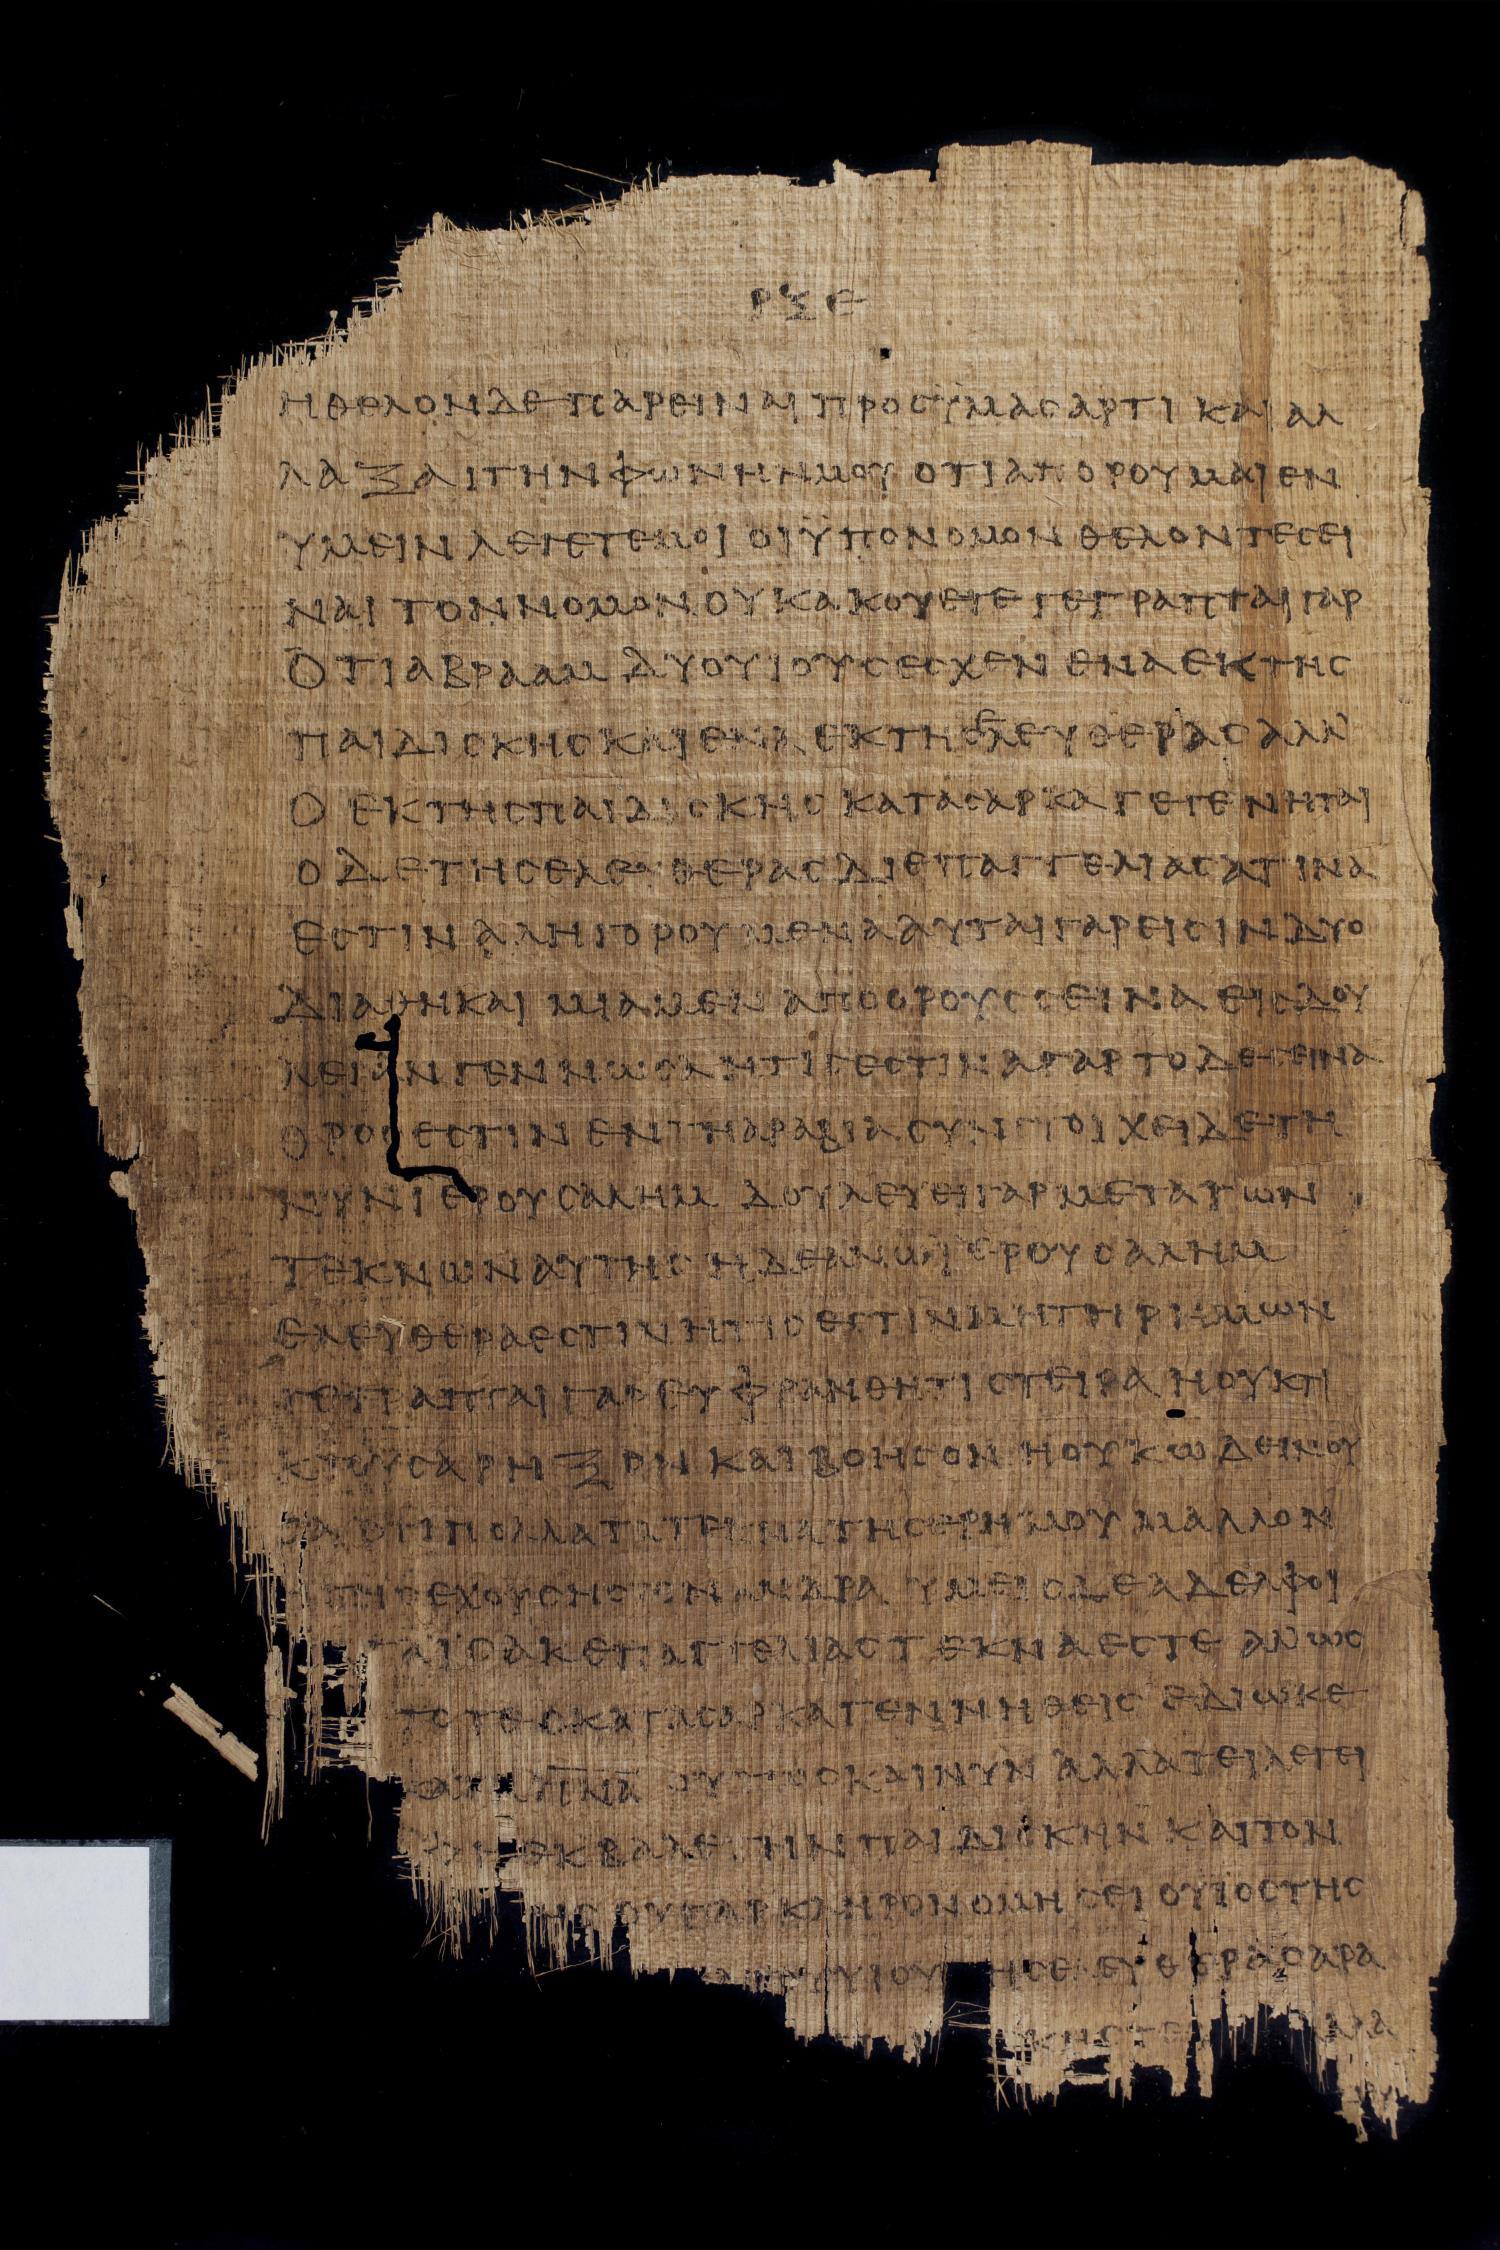 ΡΞΕ
ΗΘΕΛΟΝΔΕΠΑΡΕΙΝΑΙ ΠΡΟϹΫΜΑϹΑΡΤΙ ΚΑΙ ΑΛ
ΛΑΞΑΙΤΗΝΦΩΝΗΝΜΟΥ ΟΤΙΑΠΟΡΟΥΜΑΙ ΕΝ
ΥΜΕΙΝ ΛΕΓΕΤΕΜΟΙ ΟΙΫΠΟΝΟΜΟΝ ΘΕΛΟΝΤΕϹΕΙ
ΝΑΙ ΤΟΝΝΟΜΟΝΟΥΚΑΚΟΥΕΤΕ ΓΕΓΡΑΠΤΑΙ ΓΑΡ
ΟΤΙΑΒΡΑΑΜ ΔΥΟΥΙΟΥϹΕϹΧΕΝ ΕΝΑΕΚΤΗϹ
ΠΑΙΔΙϹΚΗϹΚΑΙ ΕΝΑ ΕΚΤΗϹΕΛΕΥΘΕΡΑϹ ΑΛΛ
Ο ΕΚΤΗϹΠΑΙΔΙϹΚΗϹ ΚΑΤΑϹΑΡΚΑ ΓΕΓΕΝΗΤΑΙ
Ο ΔΕΤΗϹΕΛΕΥΘΕΡΑϹ ΔΙΕΠΑΓΓΕΛΙΑϹΑΤΙΝΑ
ΕϹΤΙΝ ΑΛΛΗΓΟΡΟΥΜΕΝΑ ΑΥΤΑΙ ΓΑΡΕΙϹΙΝ ΔΥΟ
ΔΙΑΘΗΚΑΙ ΜΙΑΜΕΝ ΑΠΟΟΡΟΥϹϹΕΙΝΑ ΕΙϹΔΟΥ
ΛΕΙΑΝ ΓΕΝΝΩϹΑΗΤΙϹΕϹΤΙΝ ΑΓΑΡ ΤΟΔΕϹΕΙΝΑ
ΟΡΟϹΕϹΤΙΝ ΕΝΤΗΑΡΑΒΙΑ ϹΥΝϹΤΟΙΧΕΙΔΕΤΗ
ΝΥΝΙΕΡΟΥϹΑΛΗΜ ΔΟΥΛΕΥΕΙΓΑΡ ΜΕΤΑΤΩΝ
ΤΕΚΝΩΝΑΥΤΗϹ ΗΔΕΑΝΩΙΕΡΟΥϹΑΛΗΜ
ΕΛΕΥΘΕΡΑΕϹΤΙΝ ΗΤΙϹ ΕϹΤΙΝΜΗΤΗΡΗΜΩΝ
ΓΕΓΡΑΠΤΑΙ ΓΑΡ ΕΥΦΡΑΝΘΗΤΙ ϹΤΕΙΡΑ ΗΟΥΚΤΙ
ΚΤΟΥϹΑ ΡΗΞΟΝ ΚΑΙ ΒΟΗϹΟΝ ΗΟΥΚΩΔΕΙΝΟΥ
ϹΑ ΟΤΙΠΟΛΛΑΤΑΤΕΚΝΑΤΗϹΕΡΗΜΟΥ ΜΑΛΛΟΝ
ΗΤΗϹ ΕΧΟΥϹΗϹΤΟΝ ΑΝΔΡΑ ΥΜΕΙϹΔΕΑΔΕΛΦΟΙ
ΑΙϹΑΚ ΕΠΑΓΓΕΛΙΑϹ ΤΕΚΝΑΕϹΤΕ ΑΛΛ ΩϹ
ΤΟΤΕ ΟΚΑΤΑϹΑΡΚΑ ΓΕΝΝΗΘΕΙϹ ΕΔΙΩΚΕ
ΚΑΤΑ Π̅Ν̅Α̅ ΟΥΤΩϹΚΑΙΝΥΝ ΑΛΛΑΤΕΙ ΛΕΓΕΙ
ΕΚΒΑΛΕ ΤΗΝ ΠΑΙΔΙϹΚΗΝ ΚΑΙΤΟΝ
ΗϹ ΟΥΓΑΡ ΚΛΗΡΟΝΟΜΗϹΕΙ ΟΥΙΟϹΤΗϹ
ΤΟΥΥΙΟΥ ΗϹΕΛΕΥΘΕΡΑϹΑΡΑ
ΚΗϹΤΕ ΑΛΛΑ